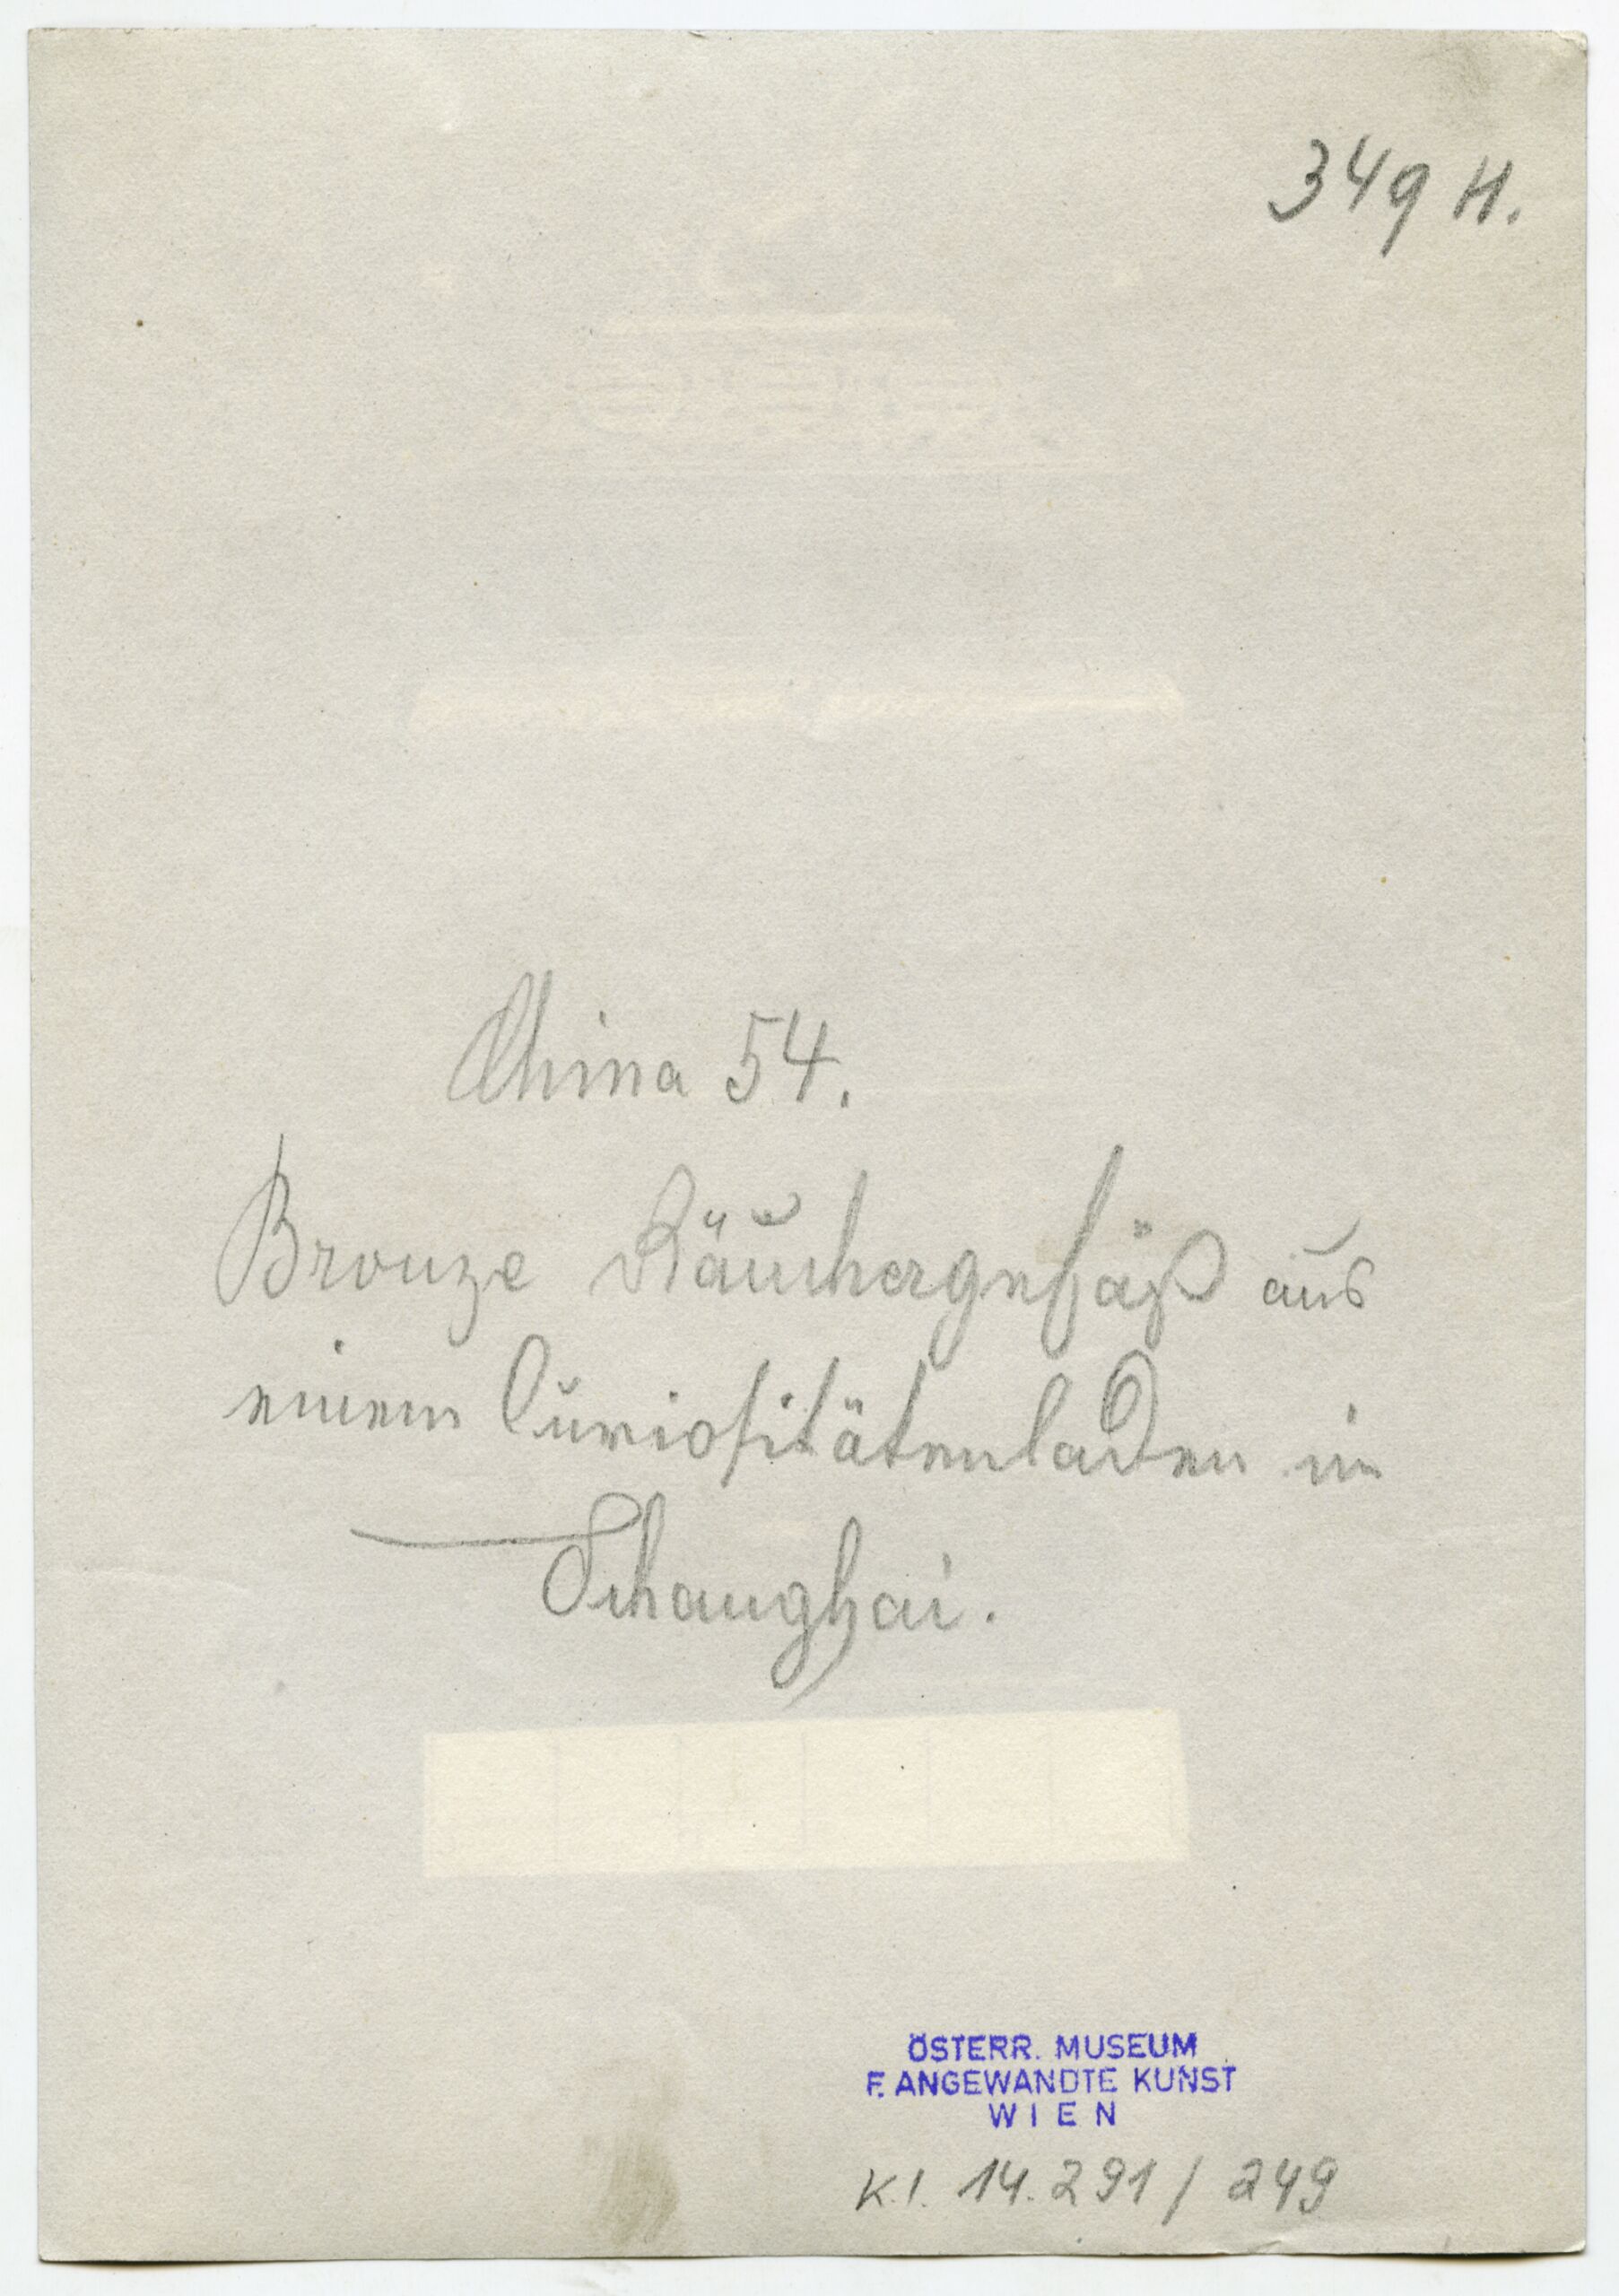 349 H.
China 54.
Bronze Räuchergefäß aus
einem Curiositätenladen in
Schanghai.
ÖSTERR. MUSEUM
F. ANGEWANDTE KUNST
WIEN
K.I. 14.291 / 249